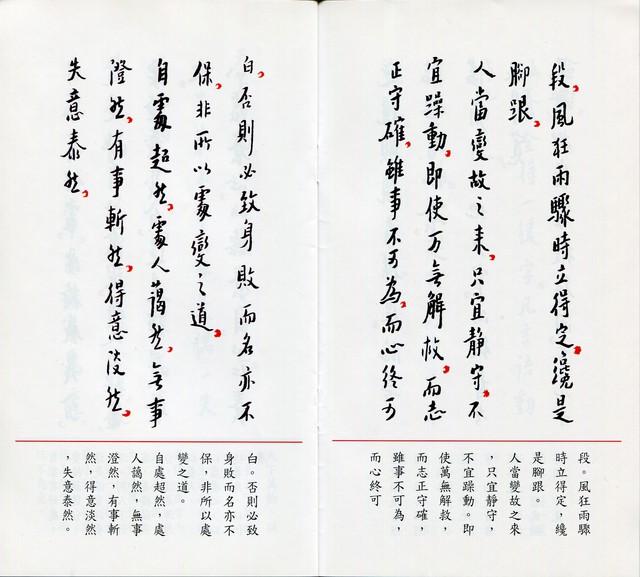 段，風狂雨驟時立得定，纔是
腳跟，
人當變故之來，只宜靜守，不
宜躁動，即使万無解救，而志
正守確，雖事不可為，而心終可
段。風狂雨驟
時立得定，纔
是腳跟。
人當變故之來
，只宜靜守，
不宜躁動。即
使萬無解救，
而志正守確，
雖事不可為，
而心終可
白，否則必致身敗而名亦不
保，非所以處變之道，
自處超然，處人藹然，無事
澄然，有事斬然，得意淡然，
失意泰然，
白。否則必致
身敗而名亦不
保，非所以處
變之道。
自處超然，處
人藹然，無事
澄然，有事斬
然，得意淡然
，失意泰然。